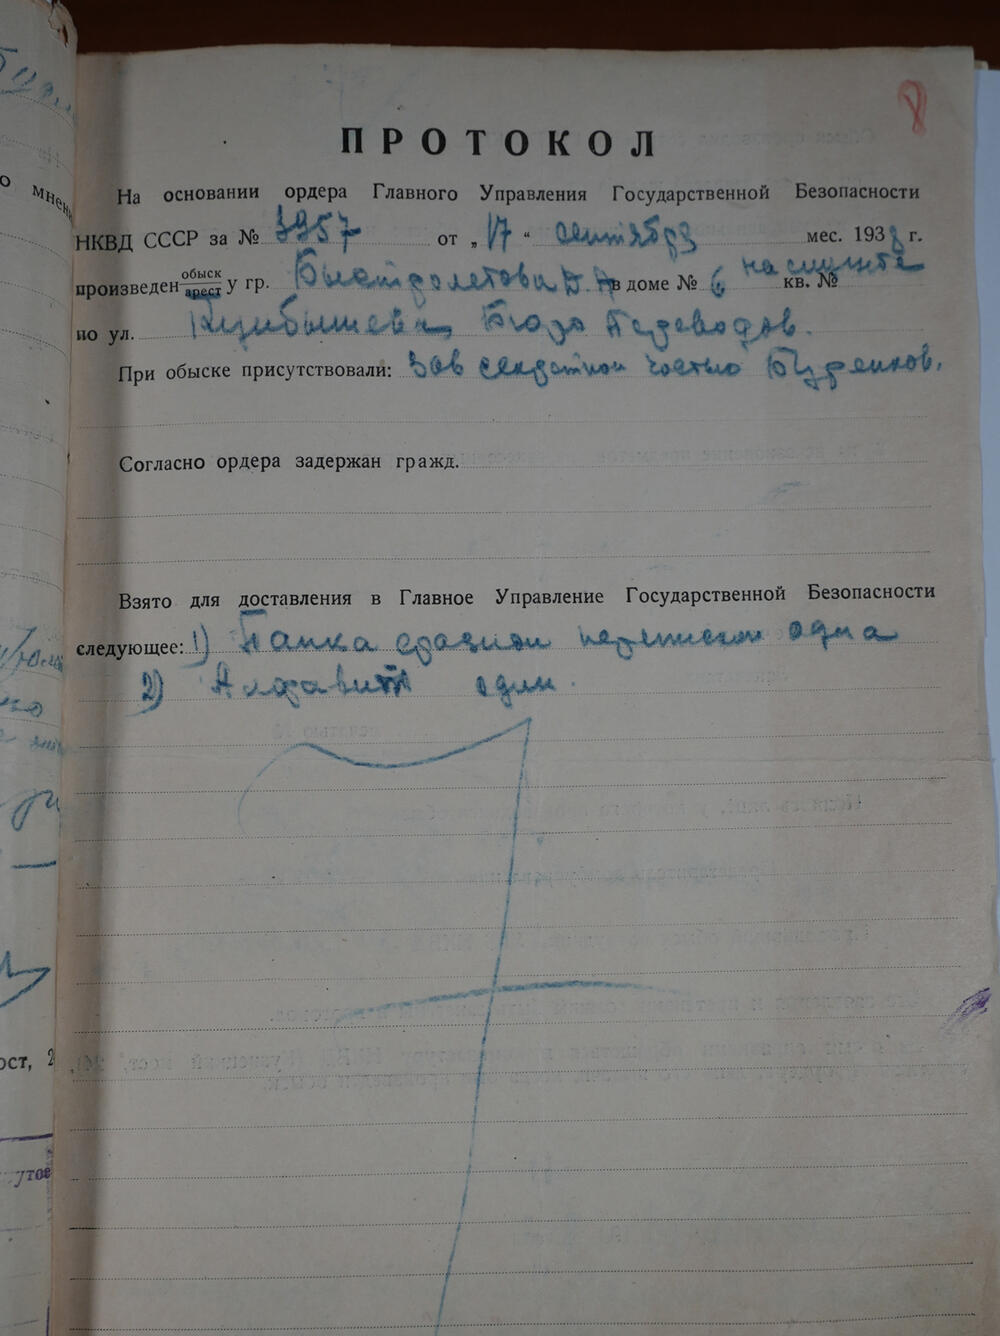 8
ПРОТОКОЛ
На основании ордера Главного Управления Государственной Безопасности
НКВД СССР за № 3957 от „17“ сентября мес. 1938 г.
произведен обыск арест у гр. Быстролетова Д. А. в доме № 6 на службе кв. №
по ул. Куйбышева, Бюро Переводов.
При обыске присутствовали: Зав секретной частью Буренков.
Согласно ордера задержан гражд.
Взято для доставления в Главное Управление Государственной Безопасности
следующее: 1) Папка с разной перепиской одна
2) Алфавит один.